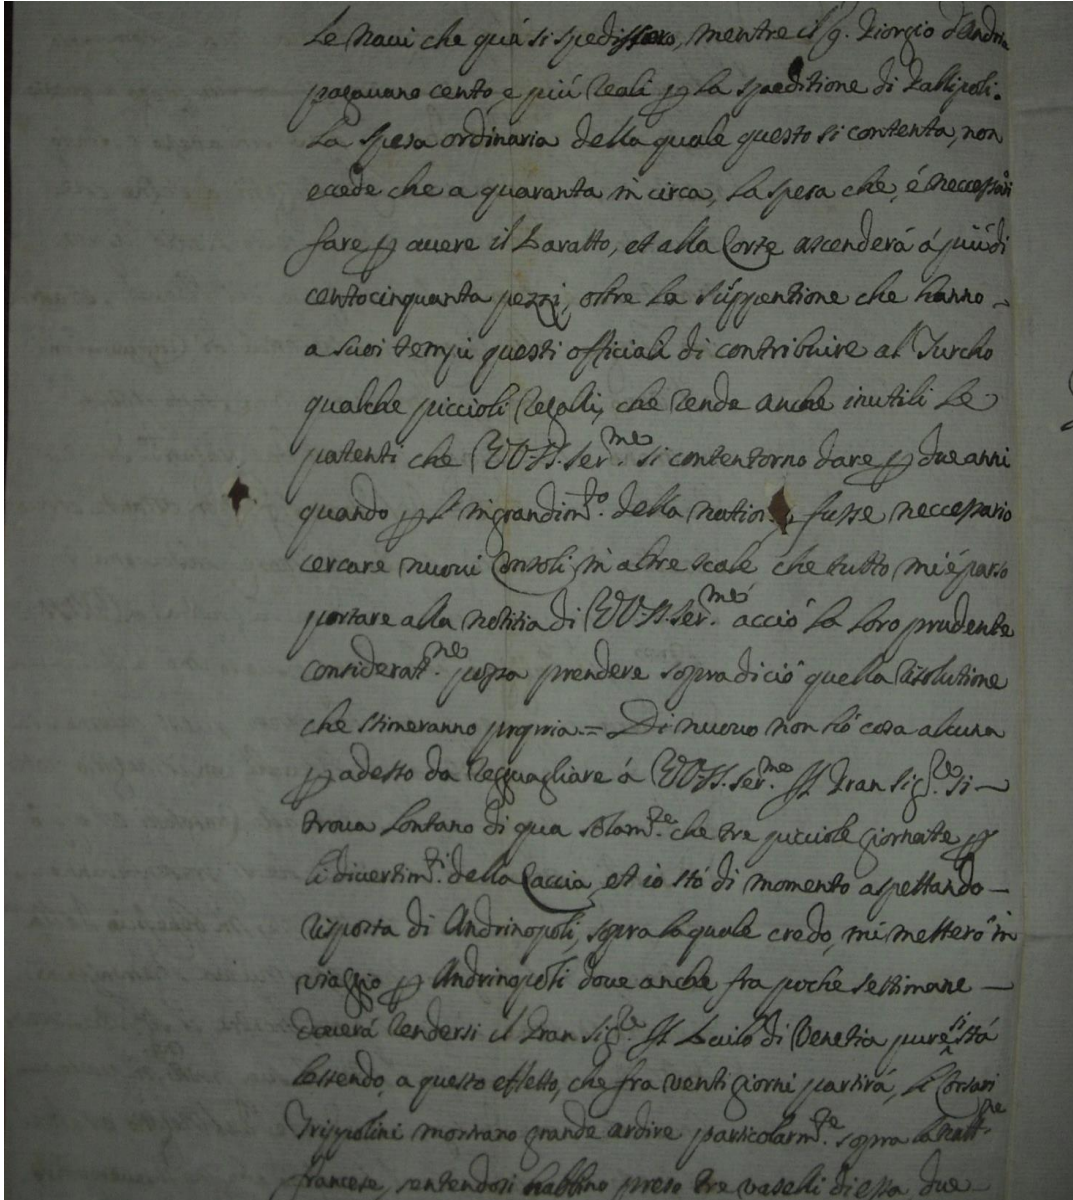 Le navi che quà si spedissero, mentre il q. Giorgio d'Andria
pagavano cento, e più reali per la speditione di Gallipoli.
La spesa ordinaria della quale questo si contenta, non
ecede che a quaranta in circa, la spesa che, é neccessari
fare per avere il Baratto, et alla Corte ascenderá á più di
centocinquanta pezzi, oltre la che hanno
a suoi tempi questi officiali di contribuire al Turcho
qualche piccioli regalli, che rende anche inutili le
patenti che VV. SS. Ser.me si contentorno dare per due anni
quando per l'ingrandim.to della fusse neccessario
cercare nuovi Consoli in altre scale che tutto mi é parso
portare alla notitia di VV. SS. Ser.me acció la loro prudente
considerat.ne possa prendere sopra di ció quella risolutione
che stimeranno propria = Di nuovo non hó cosa alcuna
per adesso da ragguagliare á VV. SS. Ser.me Il Gran Sig.re si
trova lontano di qua solam.te che tre picciole giornate per
li divertim.ti della Caccia, et io stó di momento aspettando
risposta di Andrinopoli, sopra la quale credo, mi metteró in
viaggio per Andrinopoli dove anche fra poche settimane
doverá rendersi il Gran Sig.re Il Bailo di Venetia pure si stá
lestendo, a questo effetto, che fra venti giorni partirá, li Corsari
Trippolini mostrano grande ardire particolarm.te sopra la natt.ne
francese, sentendosi habbino preso tre vaselli di essa due